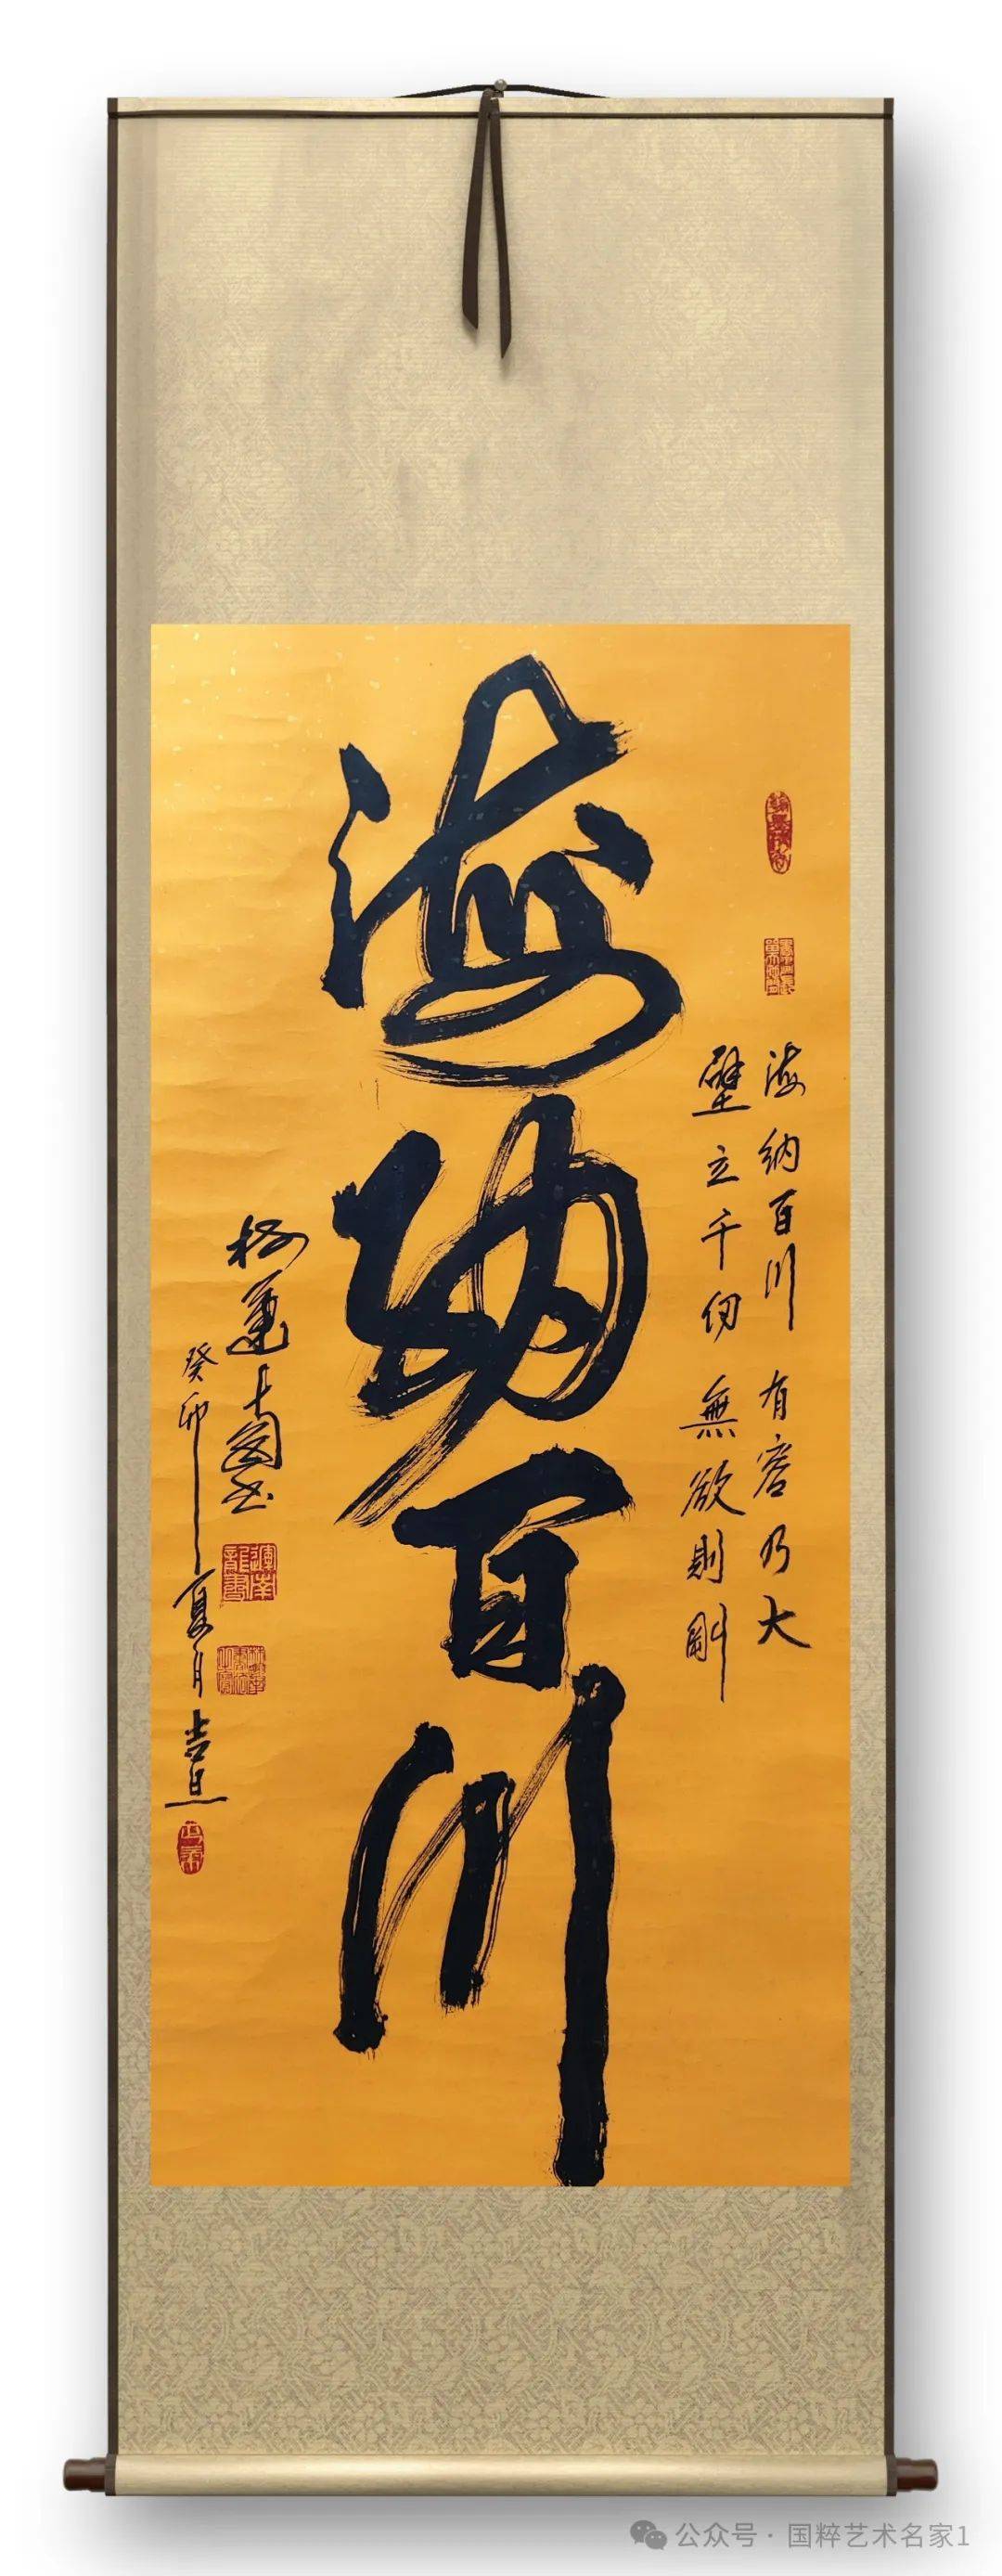 海納百川
海納百川 有容乃大
壁立千仞 無欲則剛
癸卯夏月吉旦
公众号 · 国粹艺术名家1